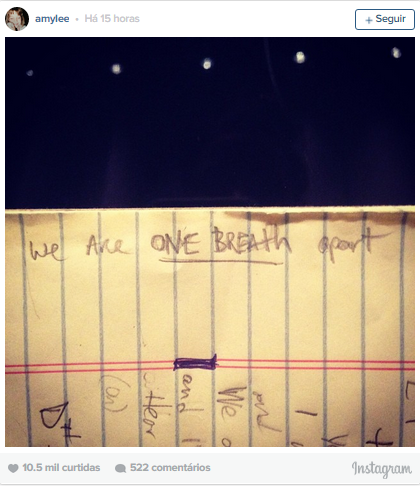 amylee
Há 15 horas
Seguir
We Are ONE BREATH apart
and
We
and
I
10.5 mil curtidas
522 comentários
Instagram